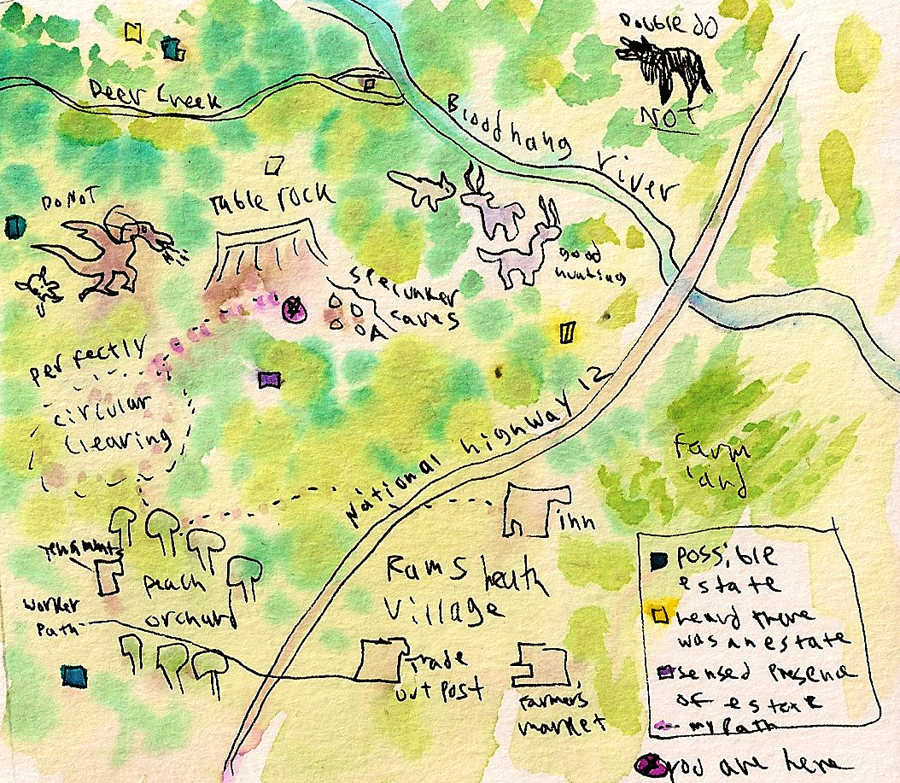 Double DO
NOT
Deer Creek
Bloodhang River
DO NOT
Table rock
good
hunting
Spelunker
caves
perfectly
circular
clearing
National highway 12
farm
land
Inn
Rams heath
Village
peach
orchard
worker
path
Trade
outpost
farmers
market
possible
estate
heard there
was an estate
sensed presence
of estate
my path
You are here